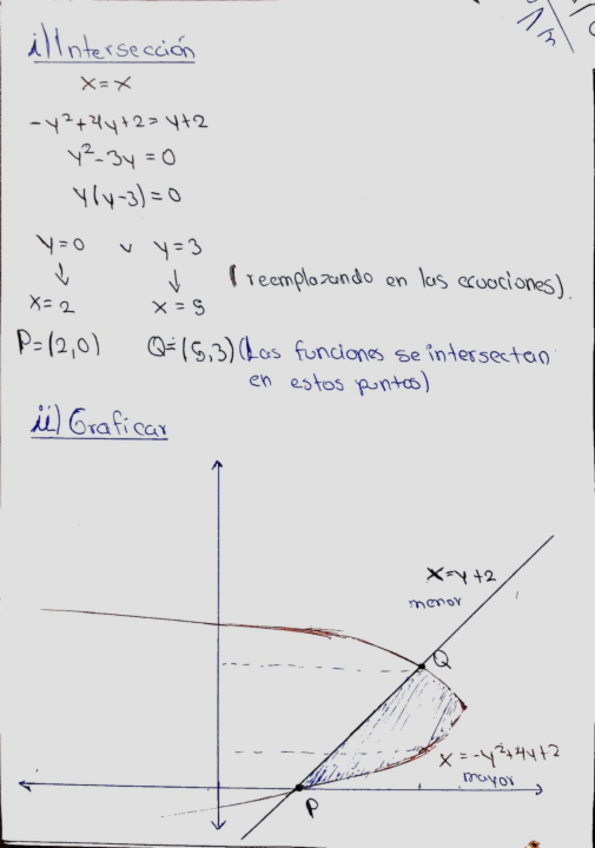 i) Intersección
x = x
-y²+4y+2 = y+2
y²-3y = 0
y(y-3) = 0
y=0 v y=3
↓ ↓ (reemplazando en las ecuaciones).
x=2 x=5
P=(2,0) Q=(5,3) (Las funciones se intersectan
en estos puntos)
ii) Graficar
x=y+2
menor
Q
x=-y²+4y+2
mayor
P